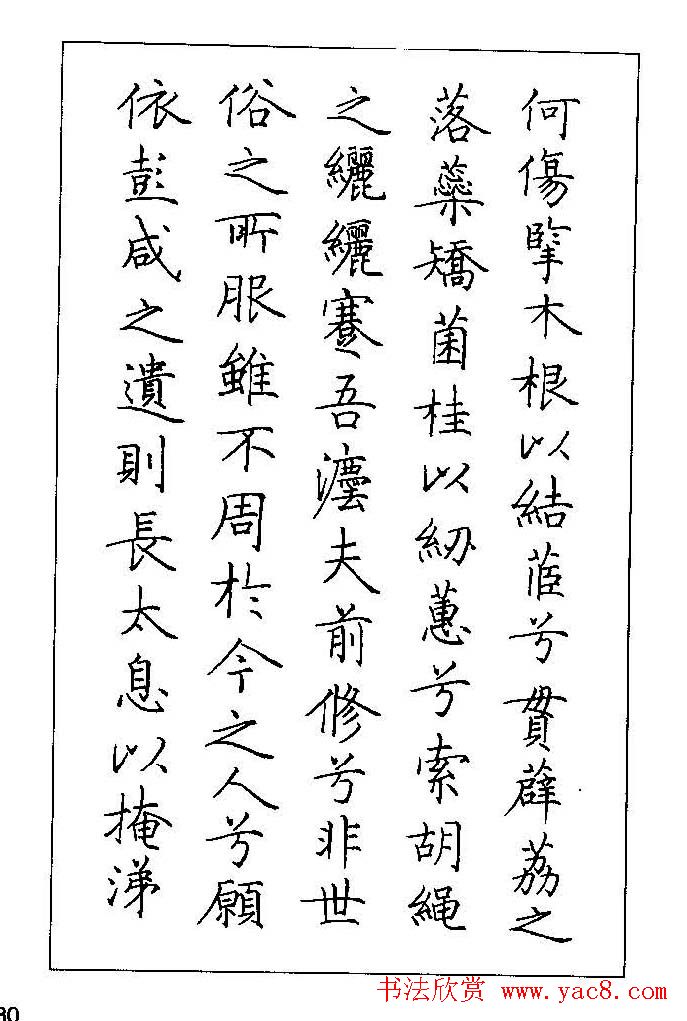 何傷擥木根以結茝兮貫薜荔之
落蘂矯菌桂以紉蕙兮索胡繩
之纚纚蹇吾灋夫前修兮非世
俗之所服雖不周於今之人兮願
依彭咸之遺則長太息以掩涕
书法欣赏 www.yac8.com